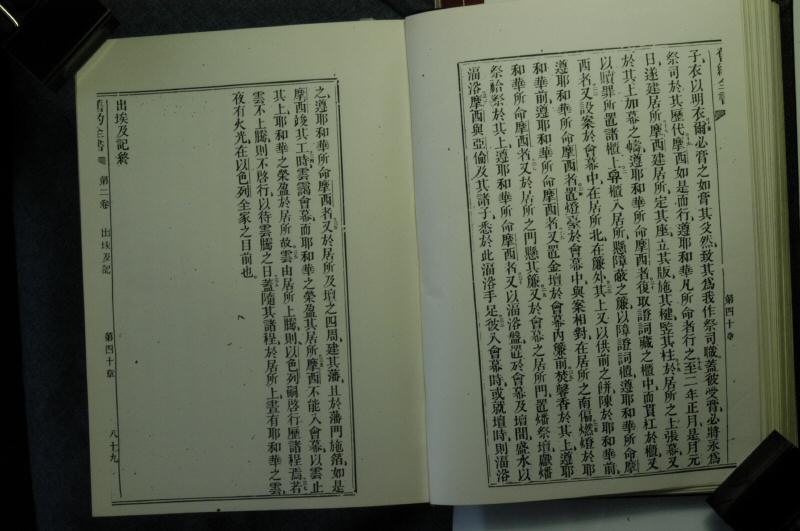 舊約全書
第四十章
子、衣以明衣、爾必膏之、如膏其父然、致其爲我作祭司職、蓋彼受膏、必將永爲
祭司於其歷代、摩西如是而行、遵耶和華凡所命者行之、至二年正月是月元
日、遂建居所、摩西建居所、定其座、立其版、施其楗、竪其柱、於居所之上張幕、又
於其上加幕之幬、遵耶和華所命摩西者、復取證詞藏之櫃中、而貫杠於櫃、又
以贖罪所置諸櫃上、舁櫃入居所、懸障蔽之簾、以障證詞櫃、遵耶和華所命摩
西者、又設案於會幕中、在居所北、在簾外、其上又以供前之餅陳於耶和華前、
遵耶和華所命摩西者、置燈臺於會幕中、與案相對、在居所之南偏、燃燈於耶
和華前、遵耶和華所命摩西者、又置金壇於會幕內簾前、焚馨香於其上、遵耶
和華所命摩西者、又於居所之門懸其簾、又於會幕之居所門、置燔祭壇、獻燔
祭祫祭於其上、遵耶和華所命摩西者、又以洏洛盤置於會幕及壇間、盛水以
洏洛、摩西與亞倫及其諸子、悉於此洏洛手足、彼入會幕時、或就壇時則洏洛
之、遵耶和華所命摩西者、又於居所及壇之四周、建其藩、且於藩門施箔、如是
摩西竣其工、時雲靄會幕、而耶和華之榮盈其居所、摩西不能入會幕、以雲止
其上、耶和華之榮盈於居所故、雲由居所上騰、則以色列嗣啓行、歷諸程焉、若
雲不上騰、則不啓行、以待雲騰之日、蓋隨其諸程、於居所上、晝有耶和華之雲、
夜有火光、在以色列全家之目前也、
出埃及記終
舊約全書 第二卷 出埃及記 第四十章 八十九